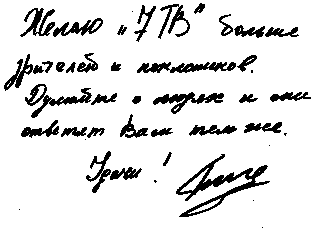 Желаю „7ТВ" больше
зрителей и поклонников.
Думайте о людях и они
ответят Вам тем же.
Удачи!